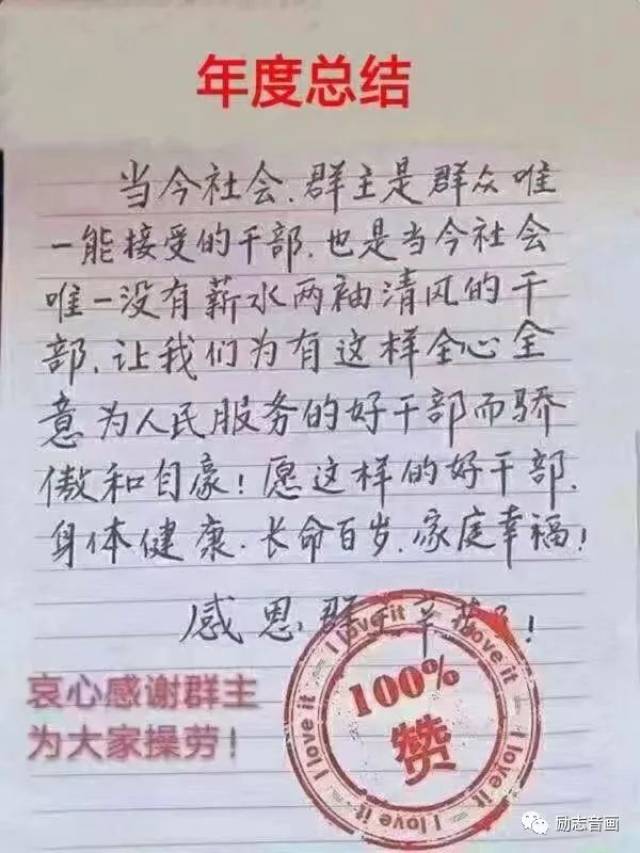 年度总结
当今社会.群主是群众唯
一能接受的干部.也是当今社会
唯一没有薪水两袖清风的干
部.让我们为有这样全心全
意为人民服务的好干部而骄
傲和自豪!愿这样的好干部.
身体健康.长命百岁.家庭幸福!
感恩群主辛苦了!
哀心感谢群主
为大家操劳!
I love it
I love it
I love it
I love it
I love it
100%
赞
励志音画